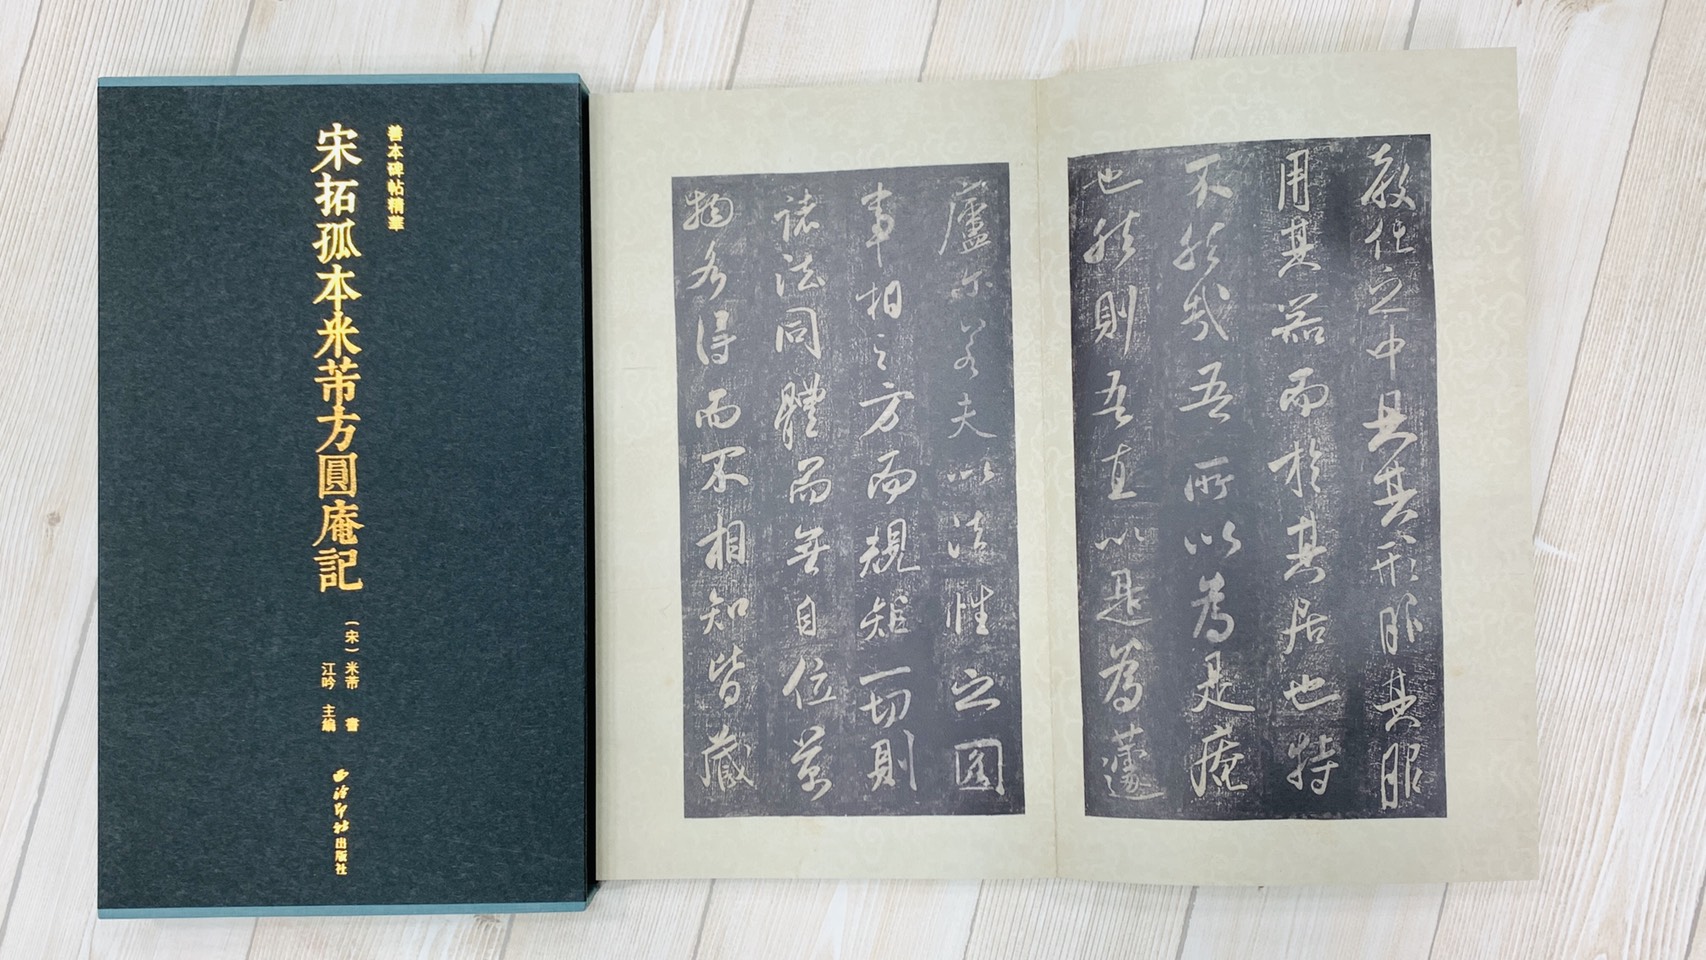 善本碑帖精華
宋拓孤本米芾方圓庵記
（宋）米芾 書
江吟 主編
西泠印社出版社
教化之中具其形服其服
用其器而於其居也特
不然哉吾所以為是庵
也然則吾直以是為蘧
廬尔若夫以法性之圓
事相之方而規矩一切則
諸法同體而無自位萬
物各得而不相知皆藏